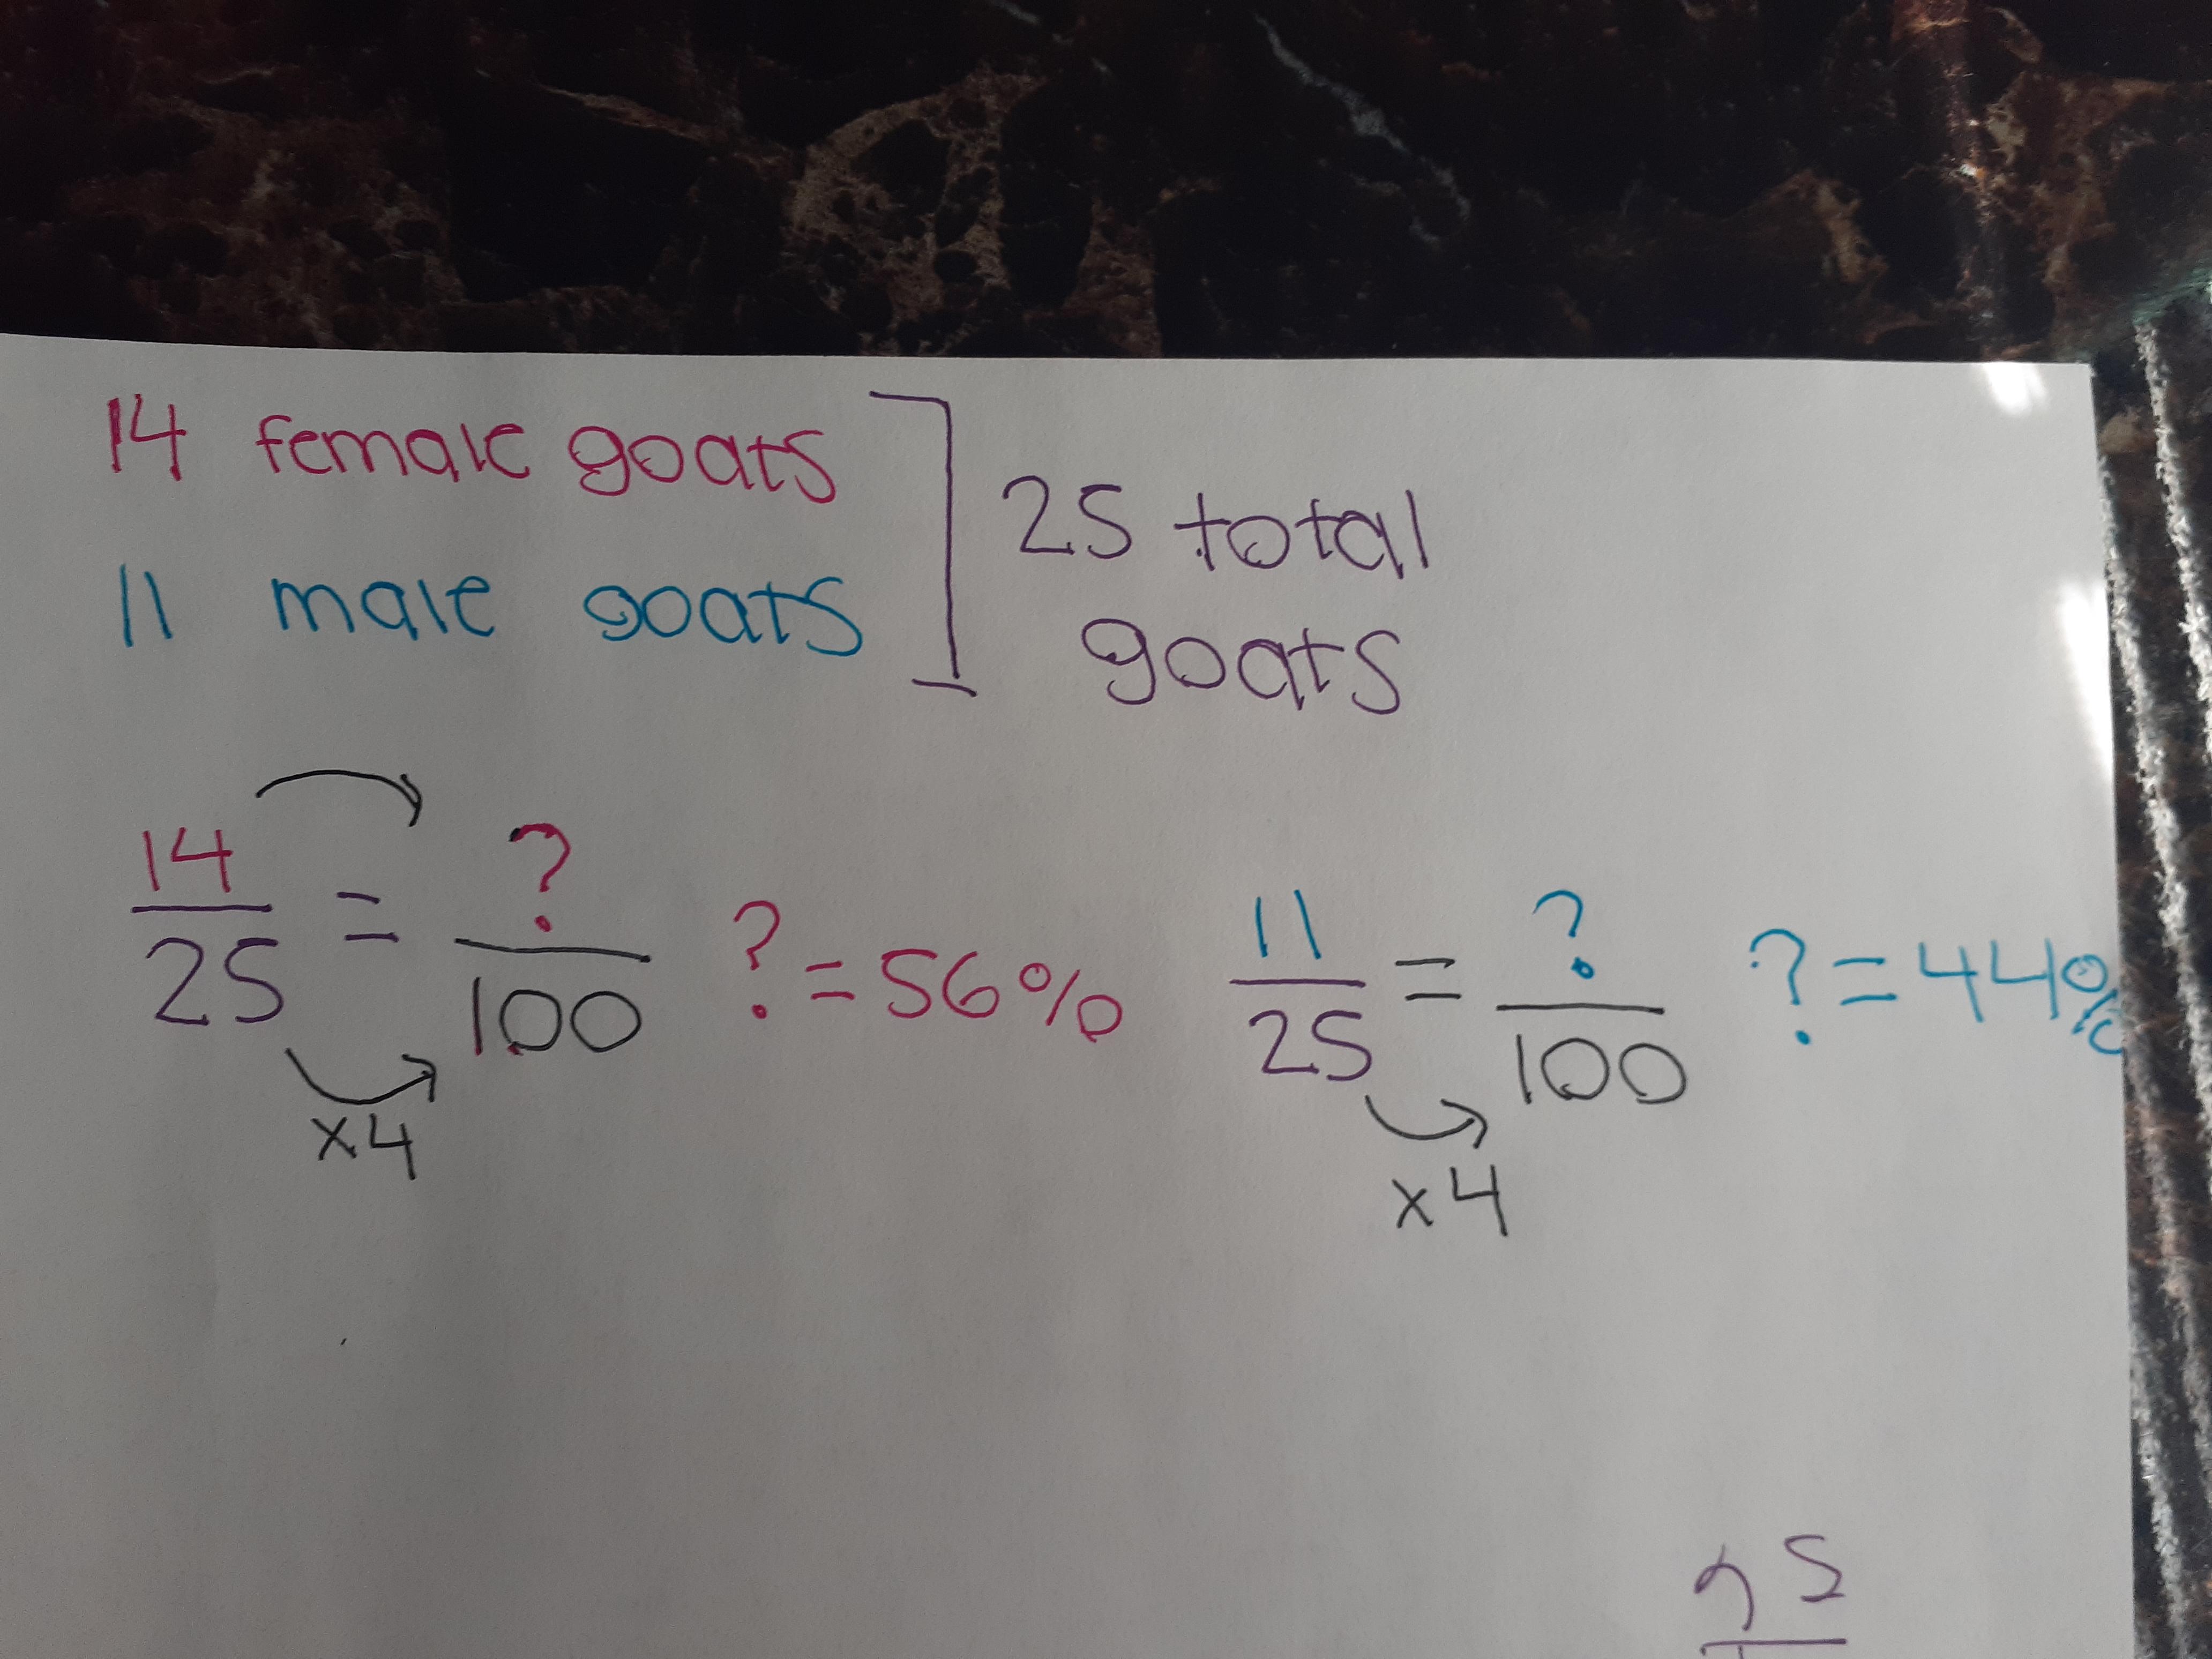 14 female goats
11 male goats
25 total
goats
14/25 = ?/100 ? = 56%
x4
11/25 = ?/100 ? = 44%
x4